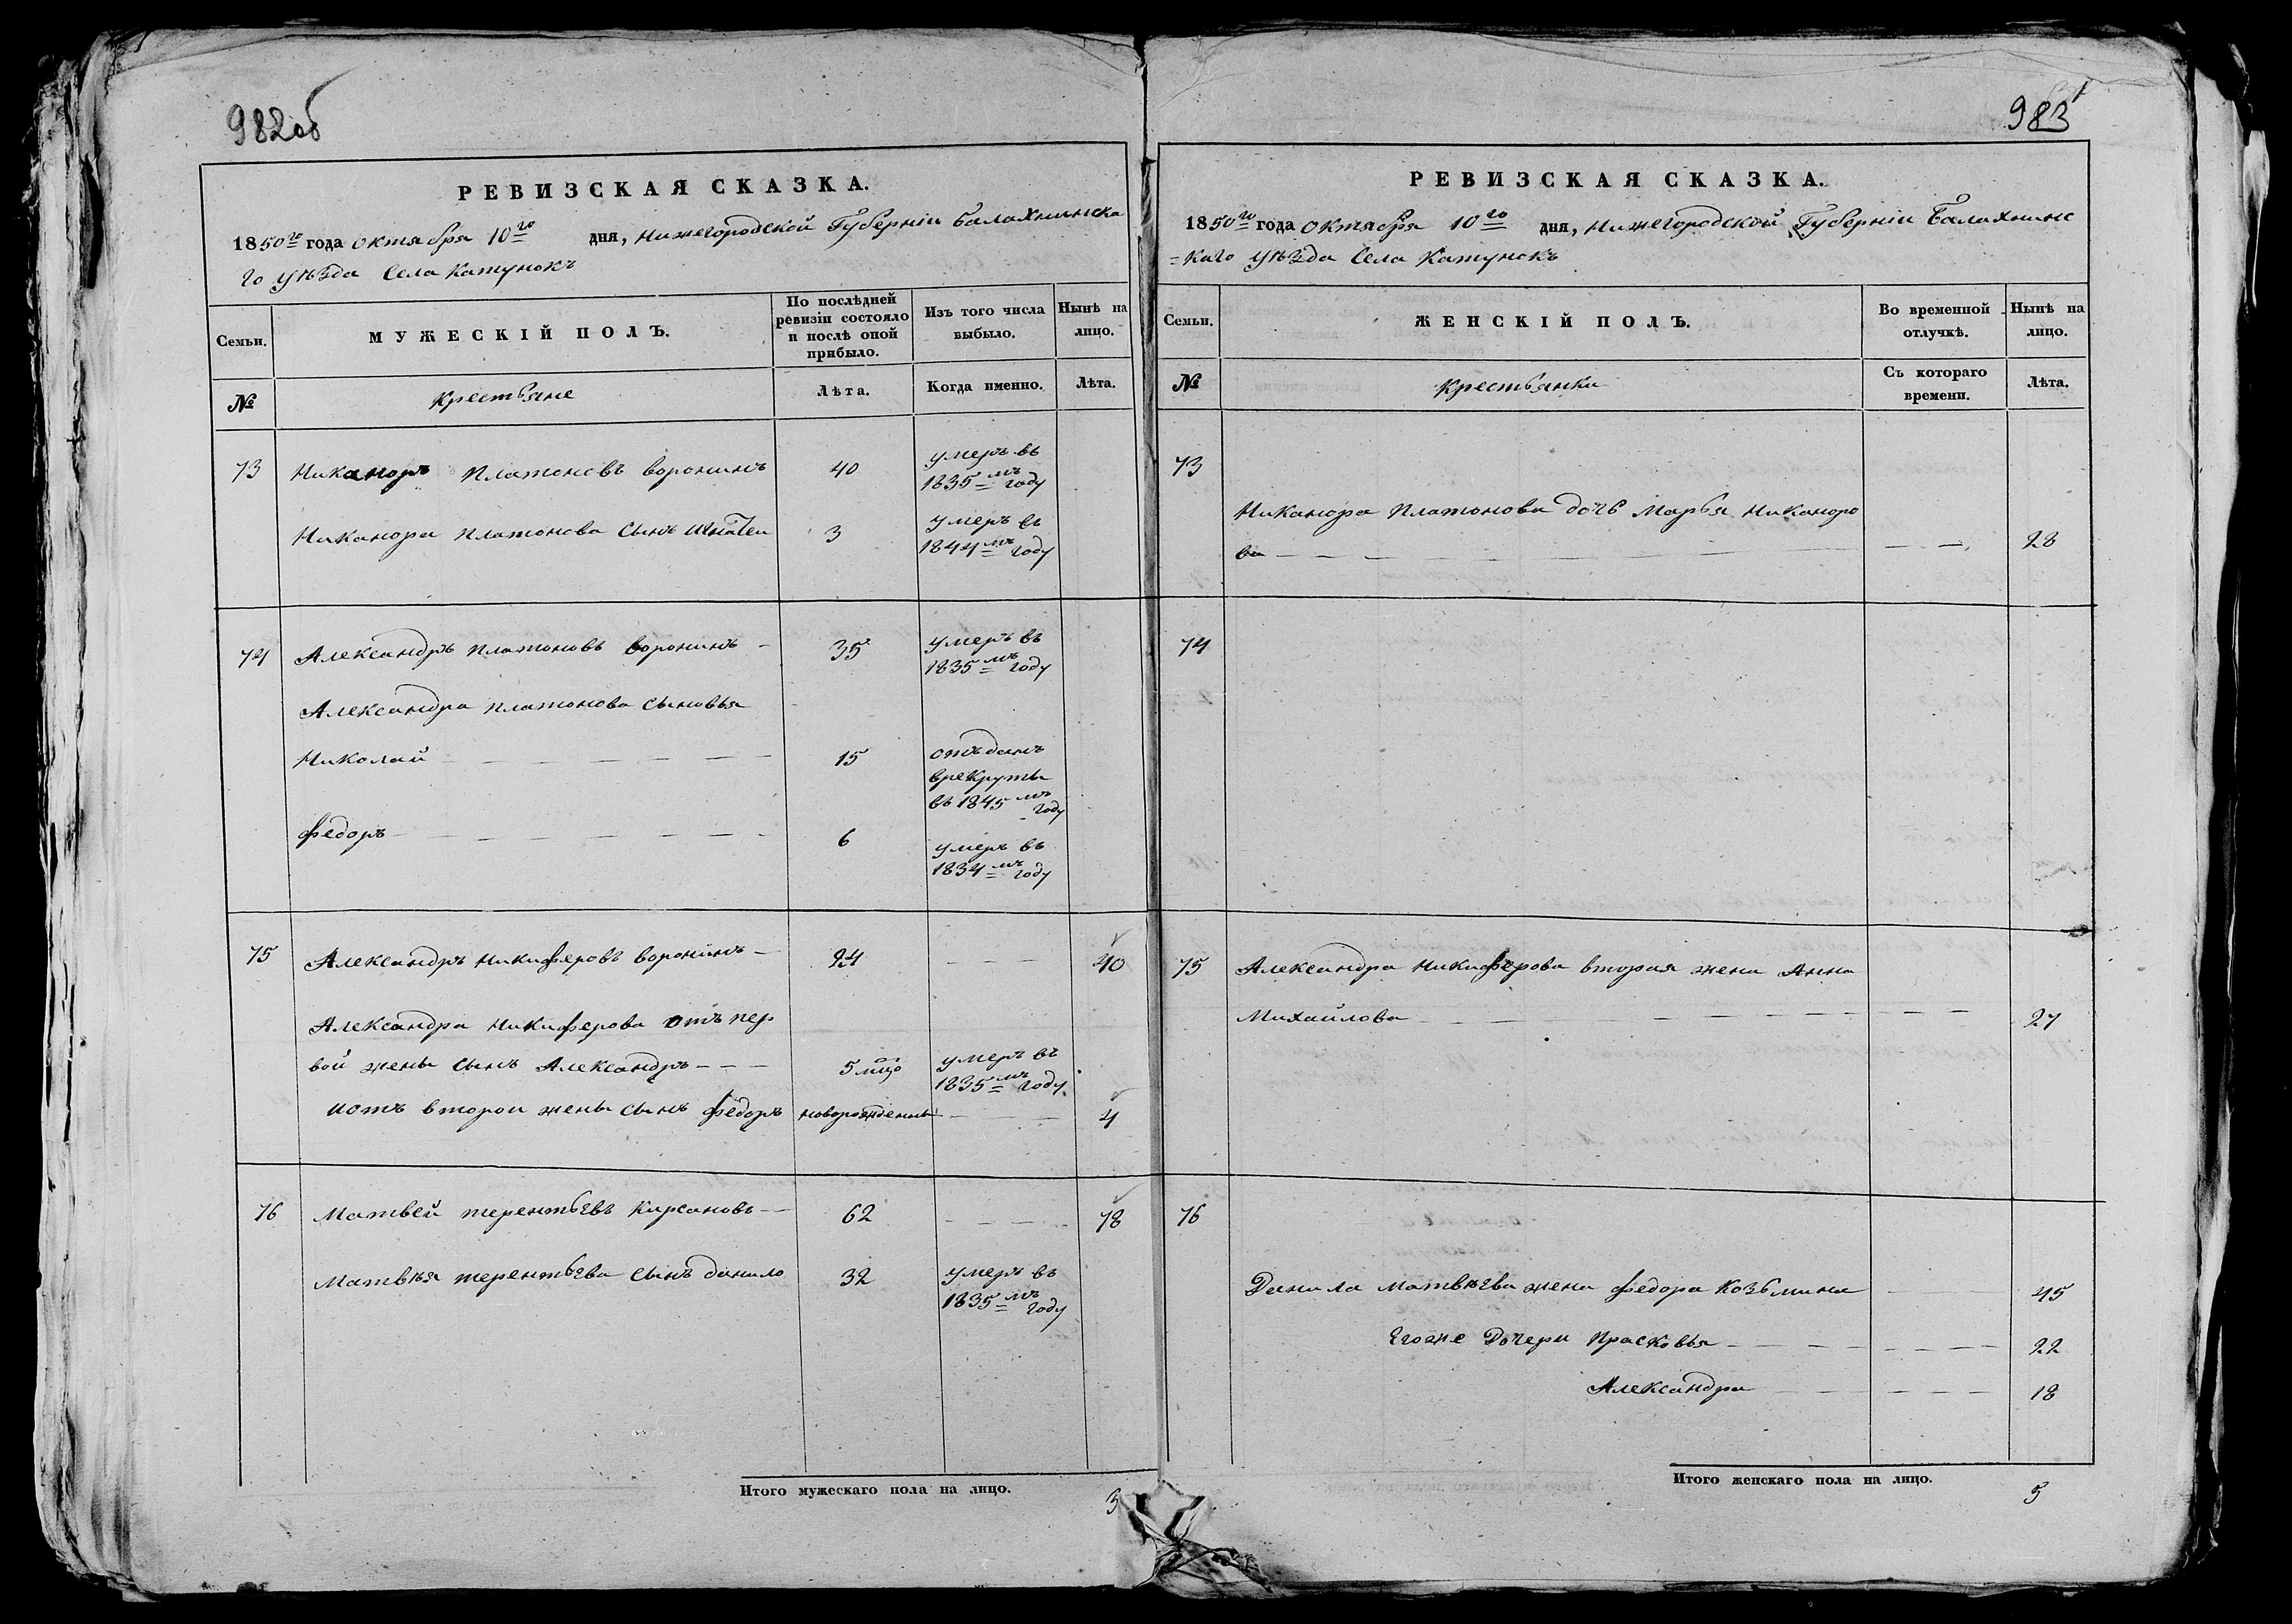 982об
РЕВИЗСКАЯ СКАЗКА.
1850го года октября 10го дня, Нижегородской Губерніи Балахнинска
го уѣзда Села Катунокъ
Семьи.
МУЖЕСКІЙ ПОЛЪ.
По послѣдней ревизіи состояло и послѣ оной прибыло.
Изъ того числа выбыло.
Нынѣ на лицо.
№
Крестьяне
Лѣта.
Когда именно.
Лѣта.
73 Никаноръ Платоновъ Воронинъ 40 умеръ въ
1835мъ году
Никанора Платонова сынъ 3 умеръ въ
1844мъ году
74 Александръ Платоновъ Воронинъ 35 умеръ въ
1835мъ году
Александра Платонова сыновья
Николай 15 отъданъ
врекруты
въ 1845мъ году
Федоръ 6 умеръ въ
1834мъ году
75 Александръ Никиферовъ Воронинъ 24 40
Александра Никиферова отъ пер
вой жены сынъ Александръ 5 умеръ въ
1835мъ году
иотъ второи жены сынъ Федоръ новорожденны 4
76 Матвей терентьевъ Кирсановъ 62 78
Матвѣя терентьева сынъ данило 32 умеръ въ
1835мъ году
Итого мужескаго пола на лицо. 3
983
РЕВИЗСКАЯ СКАЗКА.
1850го года октября 10го дня, Нижегородской Губерніи Балахнинс
=каго уѣзда Села Катунокъ
Семьи.
ЖЕНСКІЙ ПОЛЪ.
Во временной отлучкѣ.
Нынѣ на лицо.
№
Крестьянки
Съ котораго времени.
Лѣта.
73
Никанора Платонова дочь Марья Никаноро
ва 28
74
75 Александра Никиферова вторая жена Анна
Михайлова 27
76
Данила Матвѣева жена Федора Козьмина 45
Егоже Дочери Прасковья 22
Александра 18
Итого женскаго пола на лицо. 5